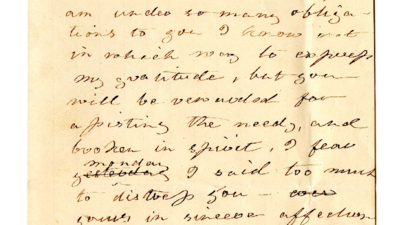 am under so many obliga-
tions to you I know not
in which way to express
my gratitude, but you
will be rewarded for
assisting the needy, and
broken in spirit, I fear
monday
yesterday I said too much
to distress you —
yours in sincere affection